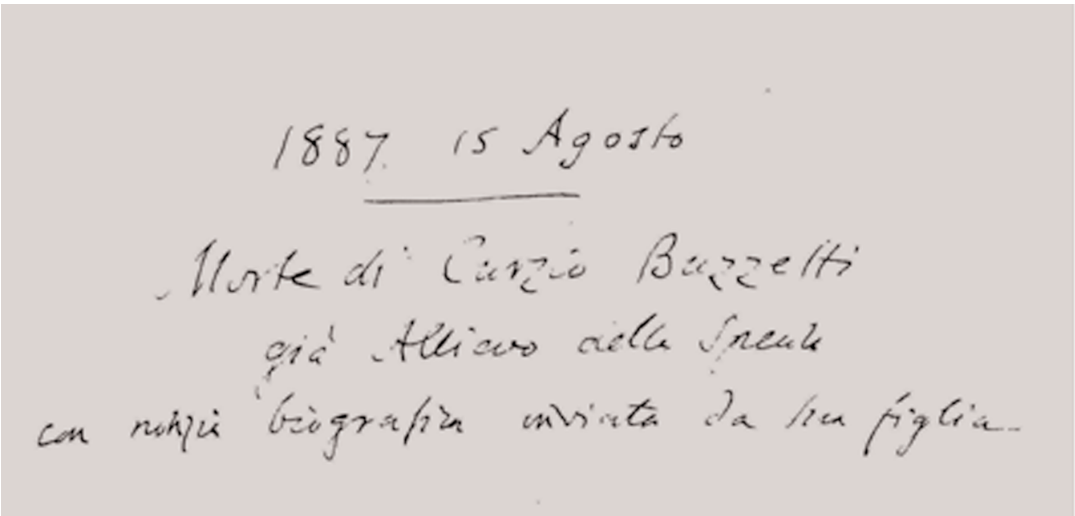 1887 15 Agosto
Morte di Curzio Buzzetti
già Allievo della Specula
con notizia biografica inviata da sua figlia